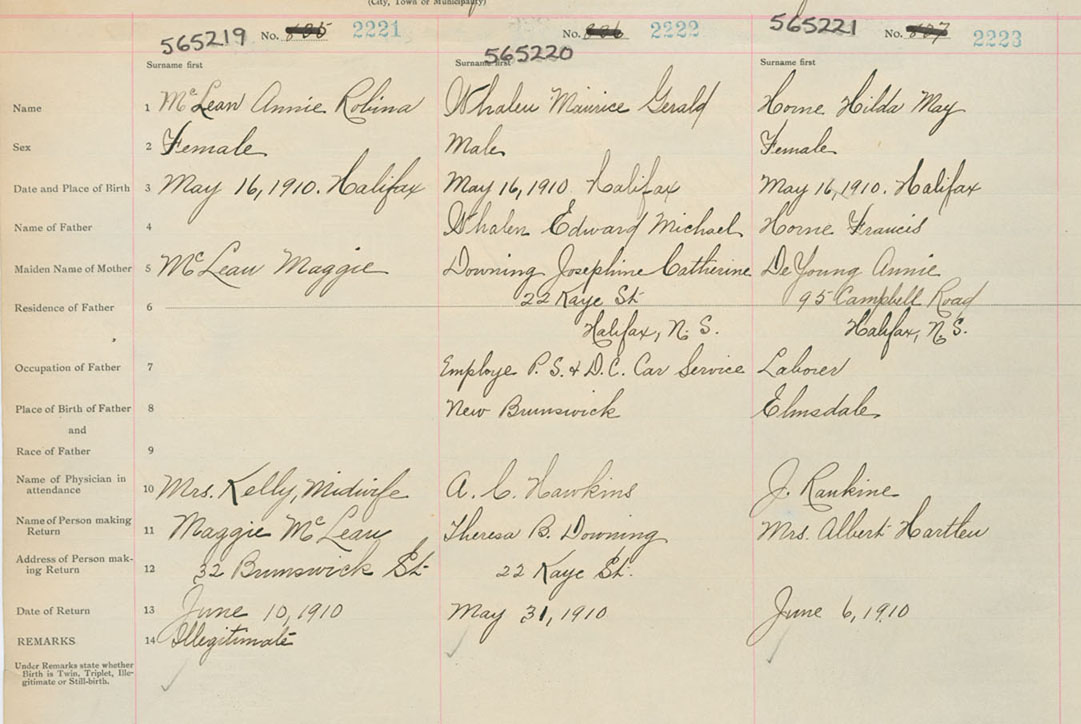 (City, Town or Municipality)
565219 No. 2221
565220 No. 2222
565221 No. 2223
Surname first Surname first Surname first
Name 1 McLean Annie Robina Whalen Maurice Gerald Horne Hilda May
Sex 2 Female Male Female
Date and Place of Birth 3 May 16, 1910. Halifax May 16, 1910. Halifax May 16, 1910. Halifax
Name of Father 4 Whalen Edward Michael Horne Francis
Maiden Name of Mother 5 McLean Maggie Downing Josephine Catherine DeYoung Annie
Residence of Father 6 22 Kaye St 95 Campbell Road
Halifax, N. S. Halifax, N. S.
Occupation of Father 7 Employe P. S. & D. C. Car Service Laborer
Place of Birth of Father 8 New Brunswick Elmsdale
and
Race of Father 9
Name of Physician in
attendance 10 Mrs. Kelly, Midwife A. C. Hawkins J. Rankine
Name of Person making
Return 11 Maggie McLean Theresa B. Downing Mrs. Albert Hartlen
Address of Person mak-
ing Return 12 32 Brunswick St 22 Kaye St.
Date of Return 13 June 10, 1910 May 31, 1910 June 6, 1910
REMARKS 14 Illegitimate
Under Remarks state whether
Birth is Twin, Triplet, Ille-
gitimate or Still-birth.